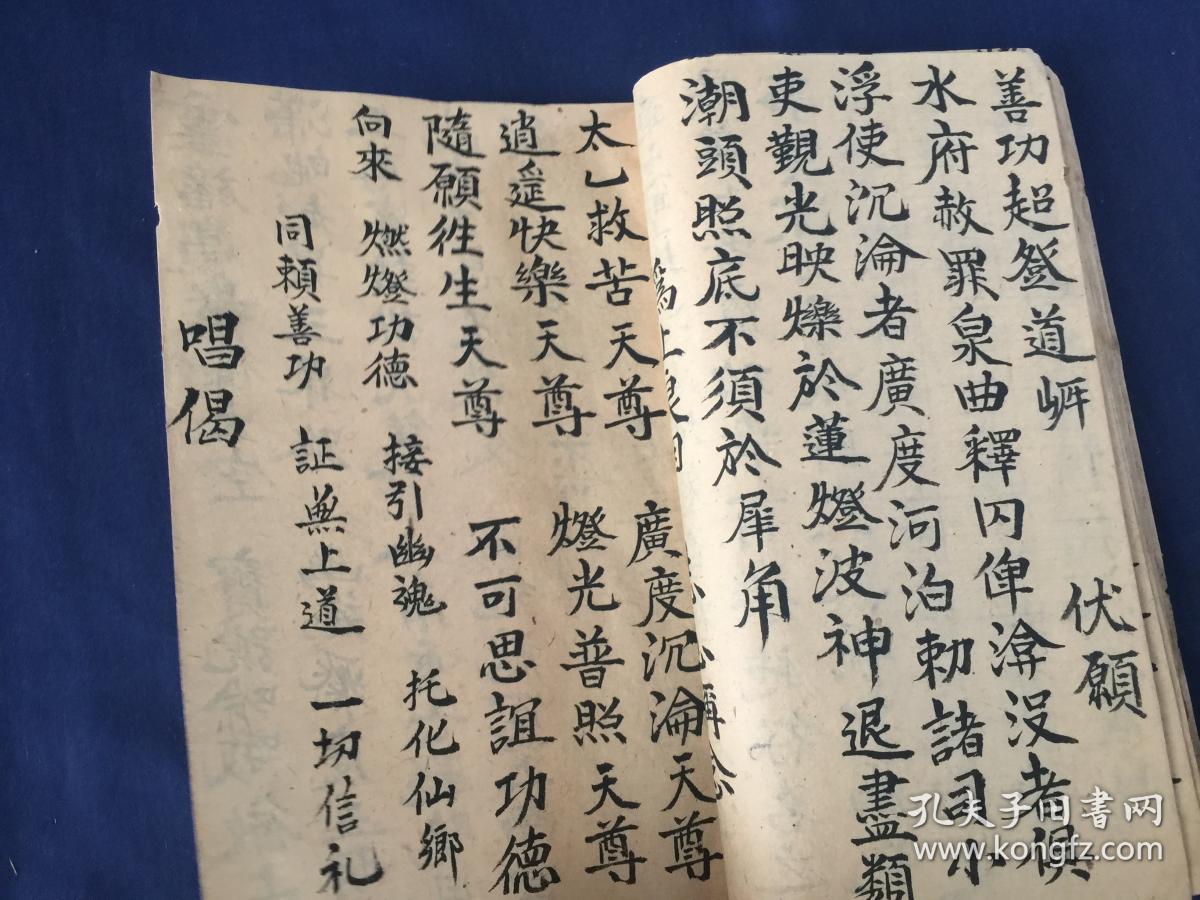 善功超登道岸 伏願
水府赦罪泉曲釋囚俾渰没者俱
浮使沉淪者廣度河泊勅諸司水
吏觀光映爍於蓮燈波神退盡類
潮頭照底不須於犀角
太乙救苦天尊 廣度沉淪天尊
逍遥快樂天尊 燈光普照天尊
隨願徃生天尊 不可思誼功德
向來 燃燈功德 接引幽魂 托化仙鄉
同頼善功 証無上道 一切信礼
唱偈
孔夫子旧书网
www.kongfz.com